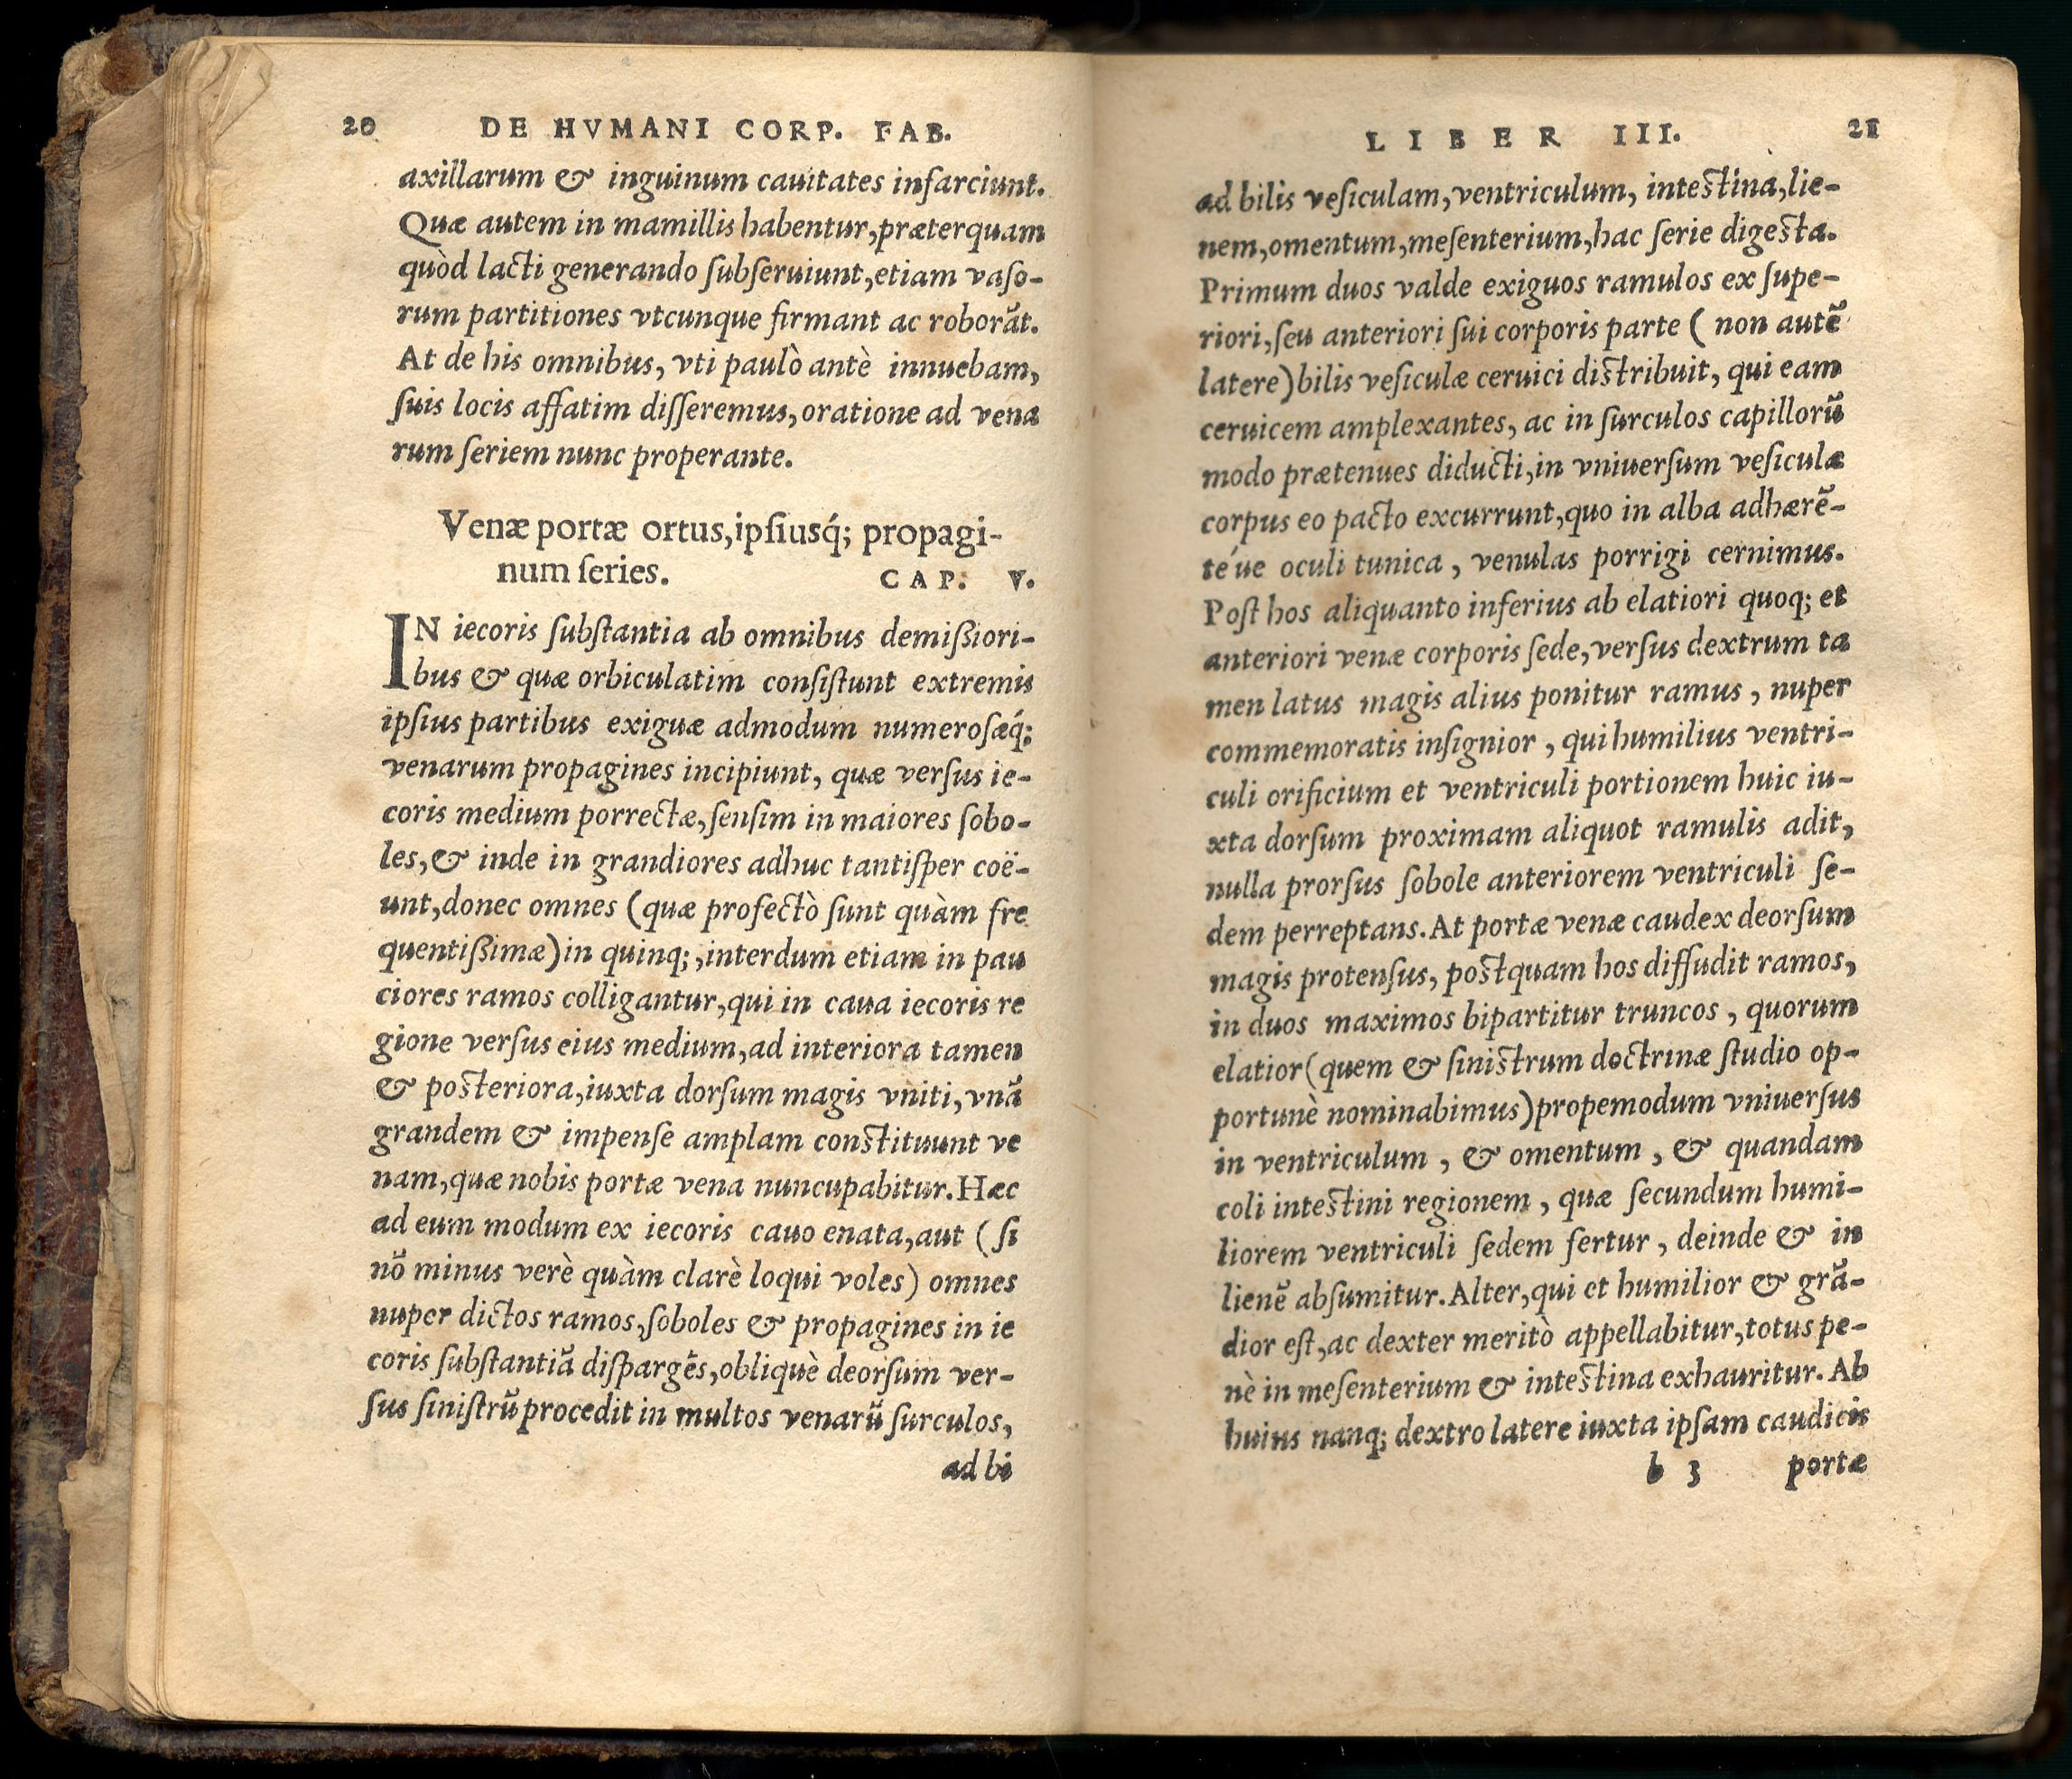 20 DE HVMANI CORP. FAB.
axillarum & inguinum cauitates infarciunt.
Quæ autem in mamillis habentur, præterquam
quòd lacti generando ſubſeruiunt, etiam vaſo-
rum partitiones vtcunque firmant ac roborāt.
At de his omnibus, vti paulò antè innuebam,
ſuis locis affatim diſſeremus, oratione ad vena
rum ſeriem nunc properante.
Venæ portæ ortus, ipſiusq́; propagi-
num ſeries. CAP. V.
IN iecoris ſubſtantia ab omnibus demißiori-
bus & quæ orbiculatim conſiſtunt extremis
ipſius partibus exiguæ admodum numeroſæq́;
venarum propagines incipiunt, quæ verſus ie-
coris medium porrectæ, ſenſim in maiores ſobo-
les, & inde in grandiores adhuc tantiſper coë-
unt, donec omnes (quæ profectò ſunt quàm fre
quentißimæ) in quinq;, interdum etiam in pau
ciores ramos colligantur, qui in caua iecoris re
gione verſus eius medium, ad interiora tamen
& poſteriora, iuxta dorſum magis vniti, vnā
grandem & impenſe amplam conſtituunt ve
nam, quæ nobis portæ vena nuncupabitur. Hæc
ad eum modum ex iecoris cauo enata, aut (ſi
nō minus verè quàm clarè loqui voles) omnes
nuper dictos ramos, ſoboles & propagines in ie
coris ſubſtantiā diſpargēs, obliquè deorſum ver-
ſus ſiniſtrū procedit in multos venarū ſurculos,
ad bi
LIBER III. 21
ad bilis veſiculam, ventriculum, inteſtina, lie-
nem, omentum, meſenterium, hac ſerie digeſta.
Primum duos valde exiguos ramulos ex ſupe-
riori, ſeu anteriori ſui corporis parte (non autē
latere) bilis veſiculæ ceruici diſtribuit, qui eam
ceruicem amplexantes, ac in ſurculos capillorū
modo prætenues diducti, in vniuerſum veſiculæ
corpus eo pacto excurrunt, quo in alba adhærē-
téue oculi tunica, venulas porrigi cernimus.
Poſt hos aliquanto inferius ab elatiori quoq; et
anteriori venæ corporis ſede, verſus dextrum ta
men latus magis alius ponitur ramus, nuper
commemoratis inſignior, qui humilius ventri-
culi orificium et ventriculi portionem huic iu-
xta dorſum proximam aliquot ramulis adit,
nulla prorſus ſobole anteriorem ventriculi ſe-
dem perreptans. At portæ venæ caudex deorſum
magis protenſus, poſtquam hos diffudit ramos,
in duos maximos bipartitur truncos, quorum
elatior (quem & ſiniſtrum doctrinæ ſtudio op-
portunè nominabimus) propemodum vniuerſus
in ventriculum, & omentum, & quandam
coli inteſtini regionem, quæ ſecundum humi-
liorem ventriculi ſedem fertur, deinde & in
lienē abſumitur. Alter, qui et humilior & grā-
dior eſt, ac dexter meritò appellabitur, totus pe-
nè in meſenterium & inteſtina exhauritur. Ab
huius nanq; dextro latere iuxta ipſam caudicis
b 3 portæ